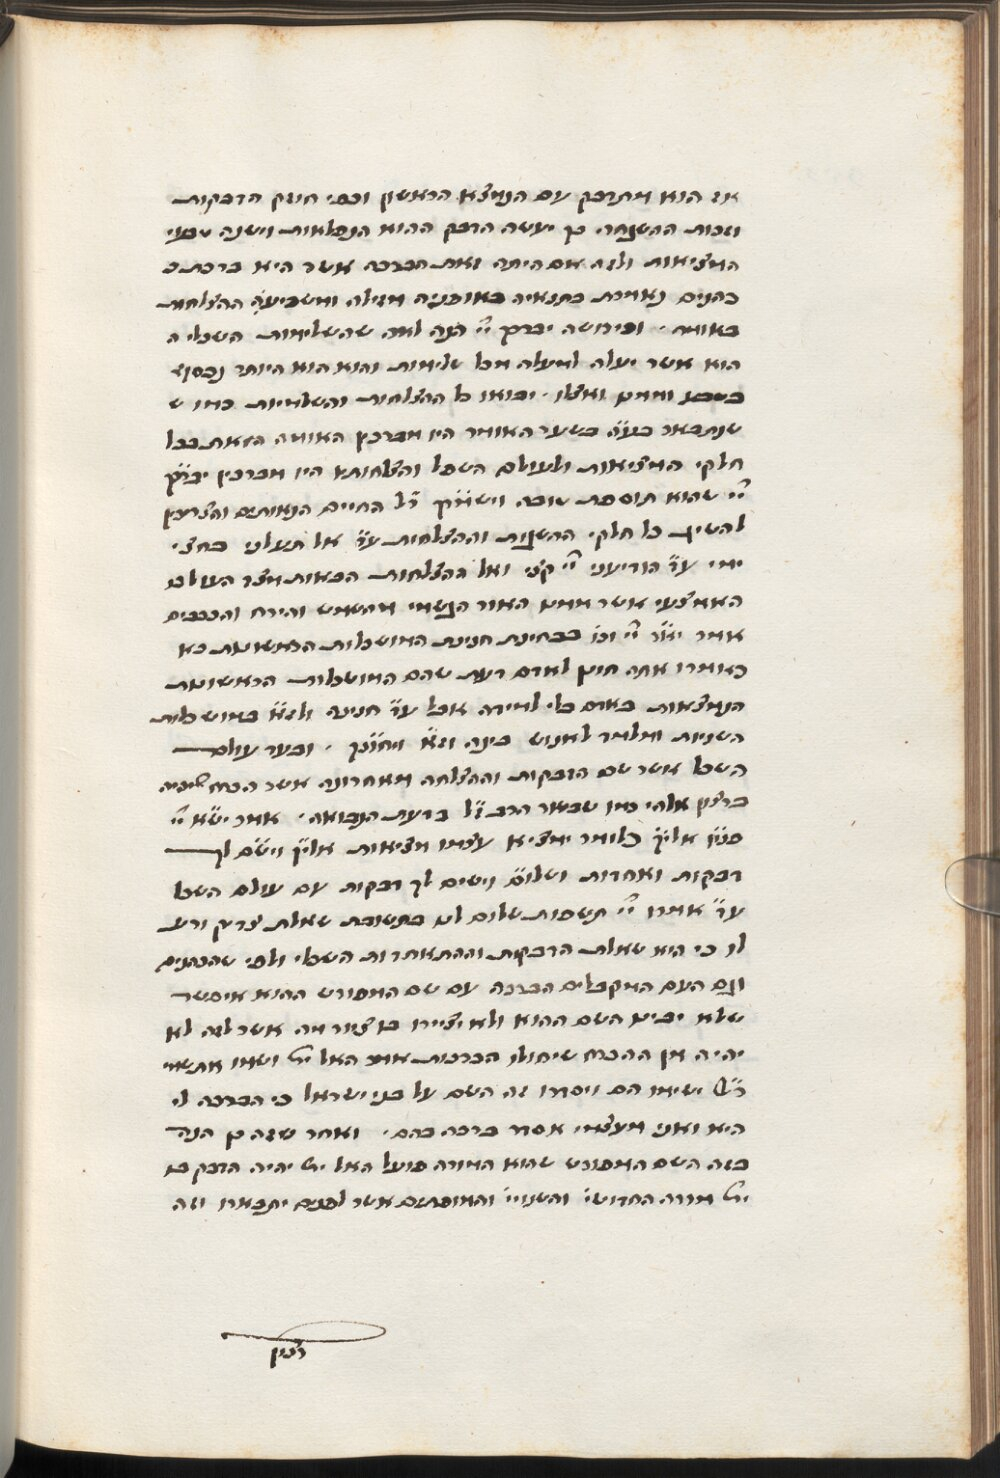 אז הוא מתדבק עם הנמצא הראשון וכפי חוזק הדבקות
וזכות ההשגחה כן יעשה הדבק ההוא הנפלאות וישנה טבעי
המציאות ולזה אם היתה זאת הברכה אשר היא ברכת כ
כהנים נאמרת בתנאיה באופניה מגילה ומשביעה ההצלחות
באומר . ופירושה יברכך יי הנה לזה שהשלימות השכלי ה
הוא אשר יעלה למעלה מכל שלימות והוא הוא היותר נכסף
בטבע וממנו ואצלו . יבואו כל ההצלחות והשלמיות כמו ש
שנתבאר בע״ה בשער האומר היו מברכין האומה הזאת בכל
חלקי המציאות ולעולם השפל והצלחותיו היו מברכין יברך
יי שהוא תוספת טובה וישמרך ר״ל החיים הנאותים והצריכין
להשיג כל חלקי ההשגות וההצלחות ע״ד אל תעלני בחצי
ימי ע״ד הודיעני יי קצי ואל ההצלחות הבאות מצד העולם
האמצעי אשר ממנו האור הגשמי מהשמש והירח והככבים
אמר יאר יי וכו׳ בבחינת חנינת המושכלות הראשונות כא
כאומרו אתה חונן לאדם דעת שהם המושכלות הראשונות
הנמצאות באדם בלי למידה אבל ע״ד חנינה ולז״א במושכלות
השניות ומלמד לאנוש בינה וז״א ויחונך . ובעד עולם
השכל אשר שם הדבקות וההצלחה מאחרונה אשר הכח
ברצון אלהי כמו שבאר הרב ז״ל בדעת הנבואה . אמר ישא יי
פניו אליך כלומר ימציא עצמו מציאות אליך וישם לך
דבקות ואחדות ושלום וישים לך דבקות עם עולם השכל
ע״ד אמרו יי תשפות שלום לנו בתשובת שאלת צדיק ורע
לו כי היא שאלת הדבקות וההתאחדות השכלי ולפי שהכהנים
וגם העם המקבלים הברכה עם שם המפורש ההוא איפשר
שלא יבינו השם ההוא ולא יציירו בו ציור מה אשר לזה לא
יהיה מן ההכרח שיחולו הברכות אמר האל ית׳ ושמו את שמי
ר״ל ישימו הם ויסדרו זה השם על בני ישראל כי הברכה לי
היא ואני מעצמי אסדר ברכה בהם . ואחר שזה כן הנה
בזה השם המפורש שהוא המורה פועל האל ית׳ יהיה הדבק בו
ית׳ מורה החדושי׳ והשנויי׳ והמופתים אשר לפנים יתבארו וזה
רצון